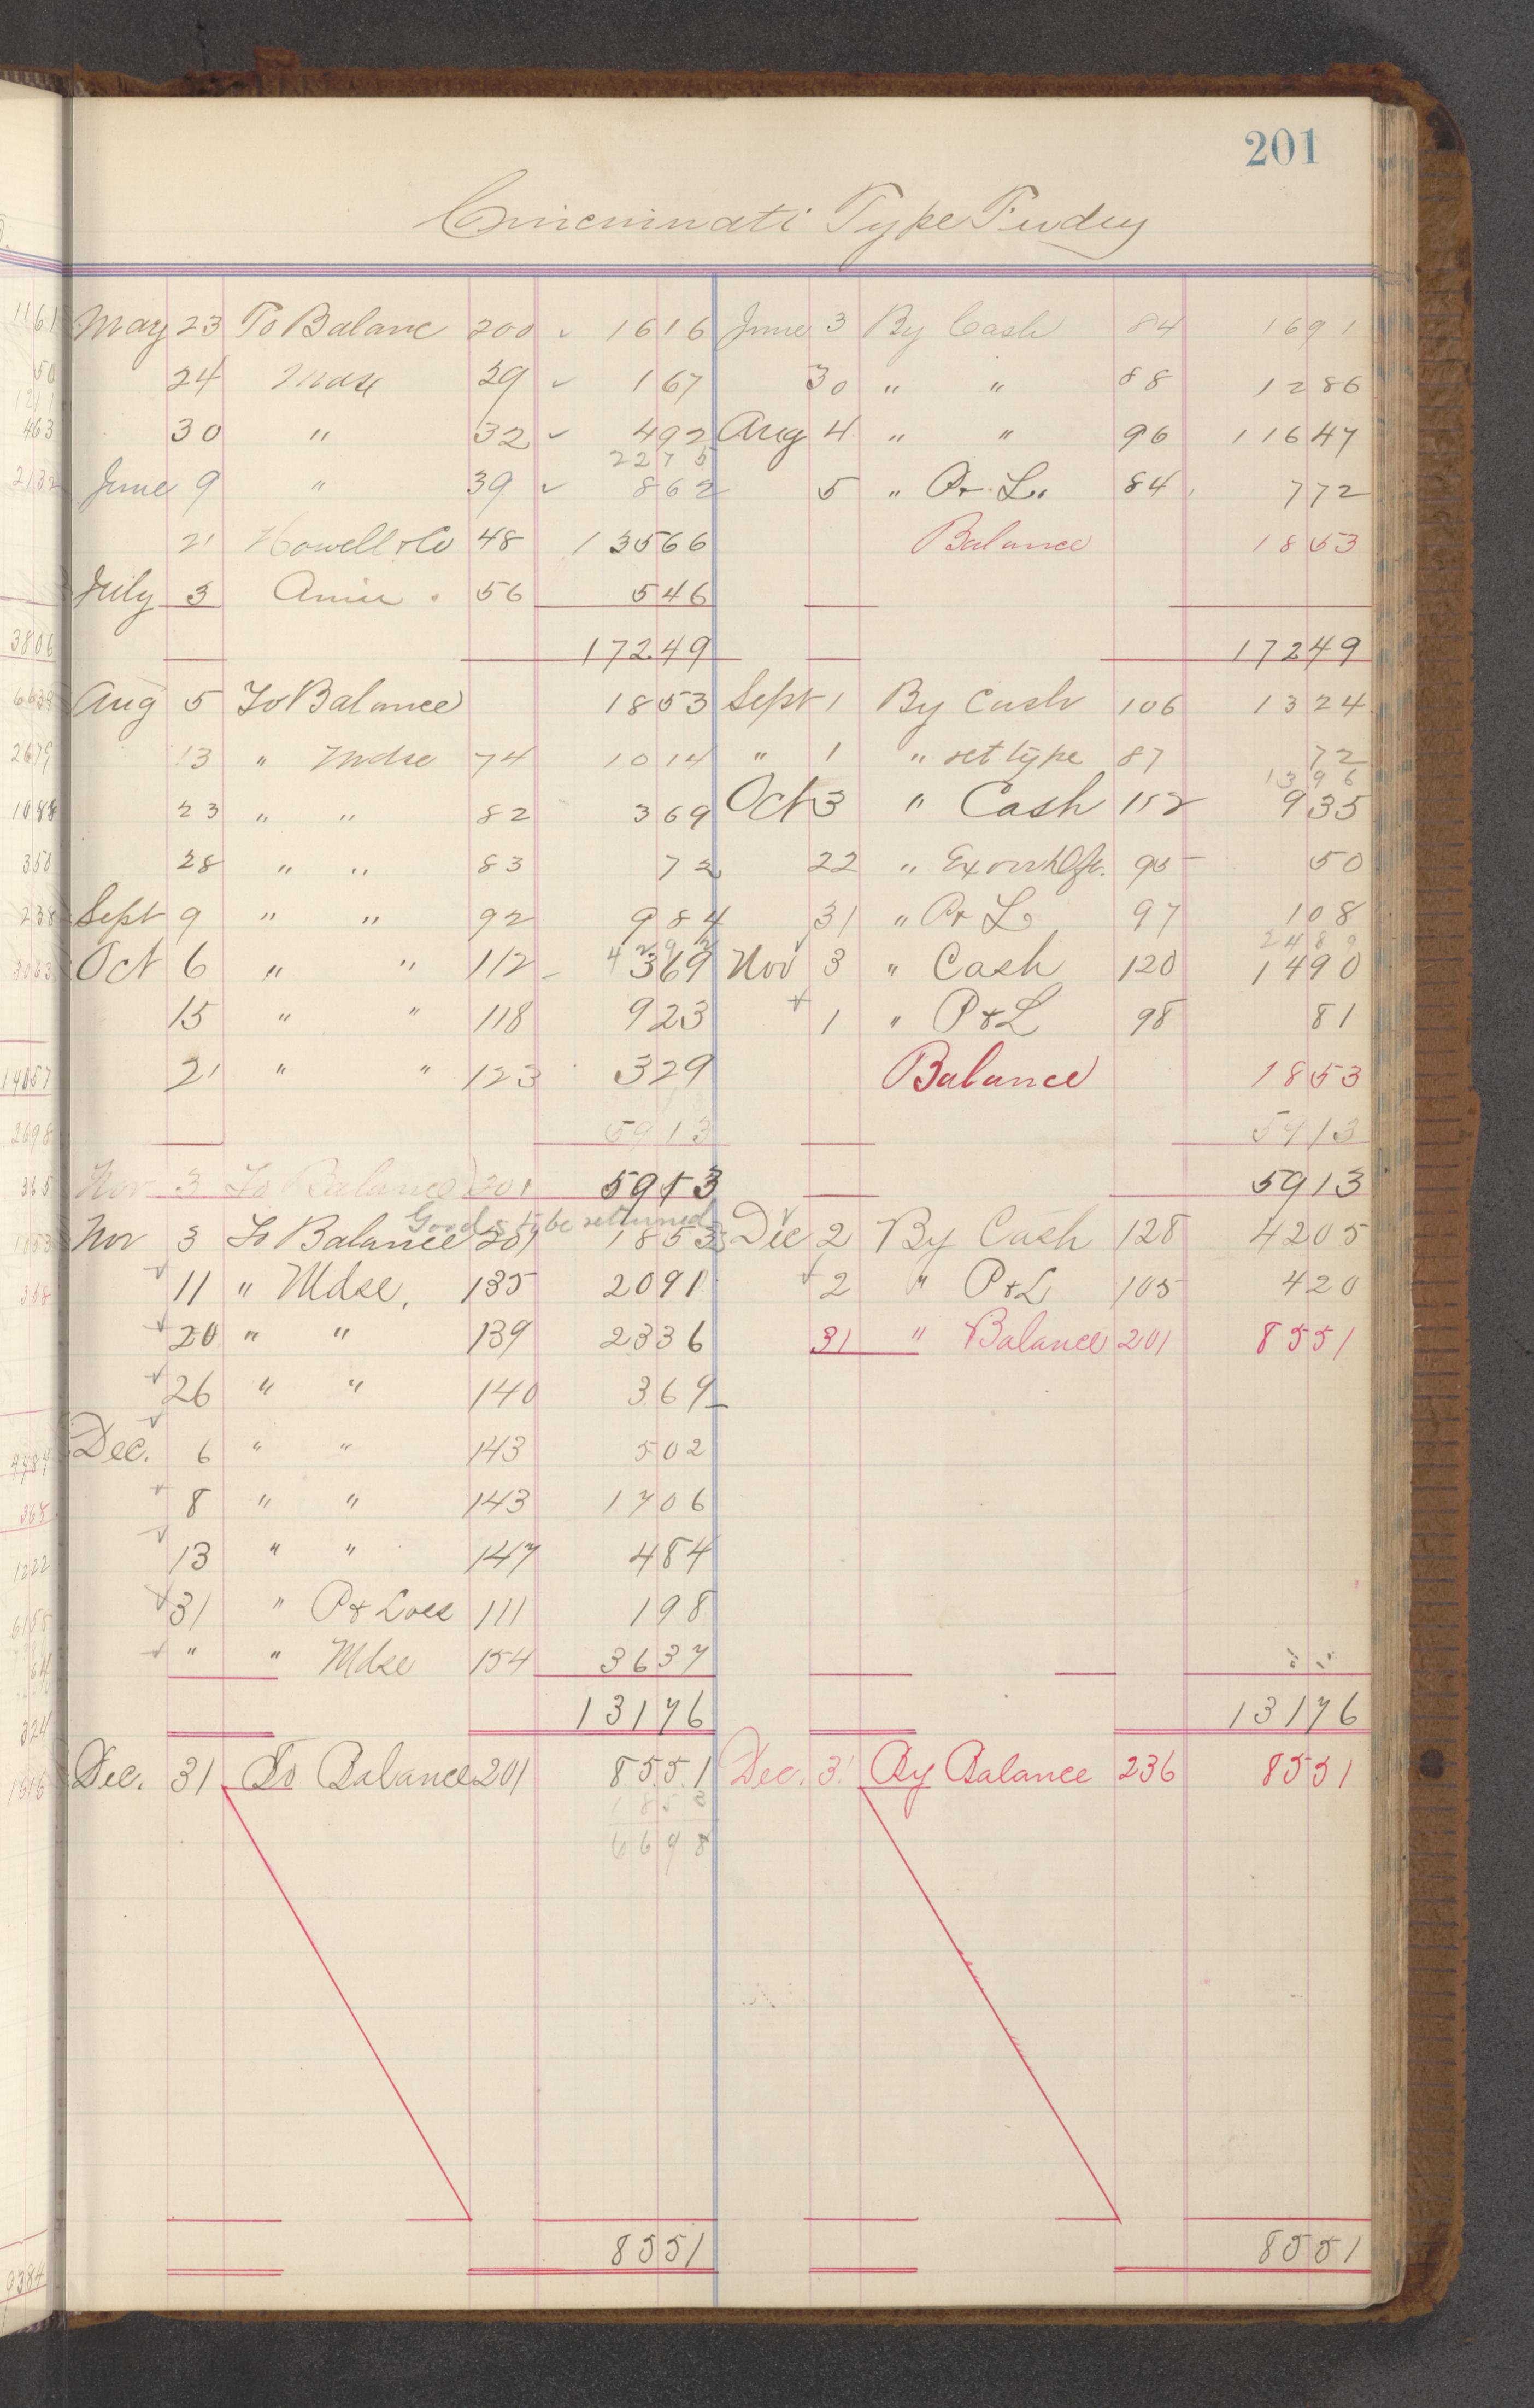 201
Cincinnati Type Fwdry
May 23 To Balanc 200 1616 June 3 By Cash 84 1691
24 Mdse 29 167 30 " " 88 1286
30 " 32 492 Aug 4 " " 96 11647
2275
June 9 " 39 862 5 " Pr. L" 84 772
21 Howell & Co 48 13566 Balance 1853
July 3 56 546
17249 17249
Aug 5 To Balance 1853 Sept 1 By Cash 106 1324
13 " Mdse 74 1014 " 1 " set type 87 72
1396
23 " " 82 369 Oct 3 " Cash 112 935
28 " " 83 72 22 " 95 50
Sept 9 " " 92 984 31 " Pr L 97 108
4292 2489
Oct 6 " " 112 369 Nov 3 " Cash 120 1490
15 " " 118 923 1 " P & L 98 81
21 " " 123 329 Balance 1853
5913 5913
Nov 3 To Balance 201 5913 5913
Goods to be returned
Nov 3 To Balance 201 1853 Dec 2 By Cash 128 4205
11 " Mdse. 135 2091 2 " P & L 105 420
20 " " 139 2336 31 " Balance 201 8551
26 " " 140 369
Dec. 6 " " 143 502
8 " " 143 1706
13 " " 147 484
31 " P & Loss 111 198
" " Mdse 154 3637
13176 13176
Dec. 31 To Balance 201 8551 Dec. 31 By Balance 236 8551
1853
6698
8551 8551